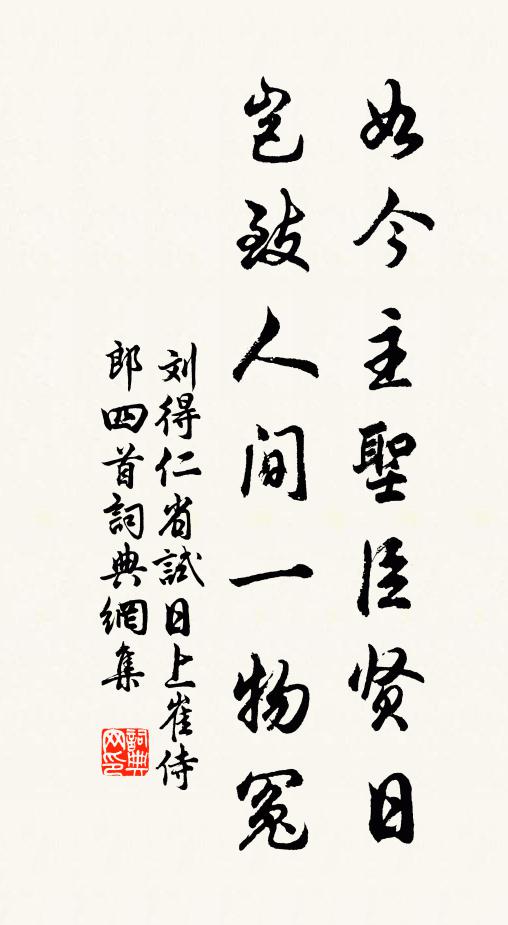 如今主聖臣贤日
岂致人间一物冤
刘得仁省試日上崔侍
郎四首詞典網集
詞典
网印